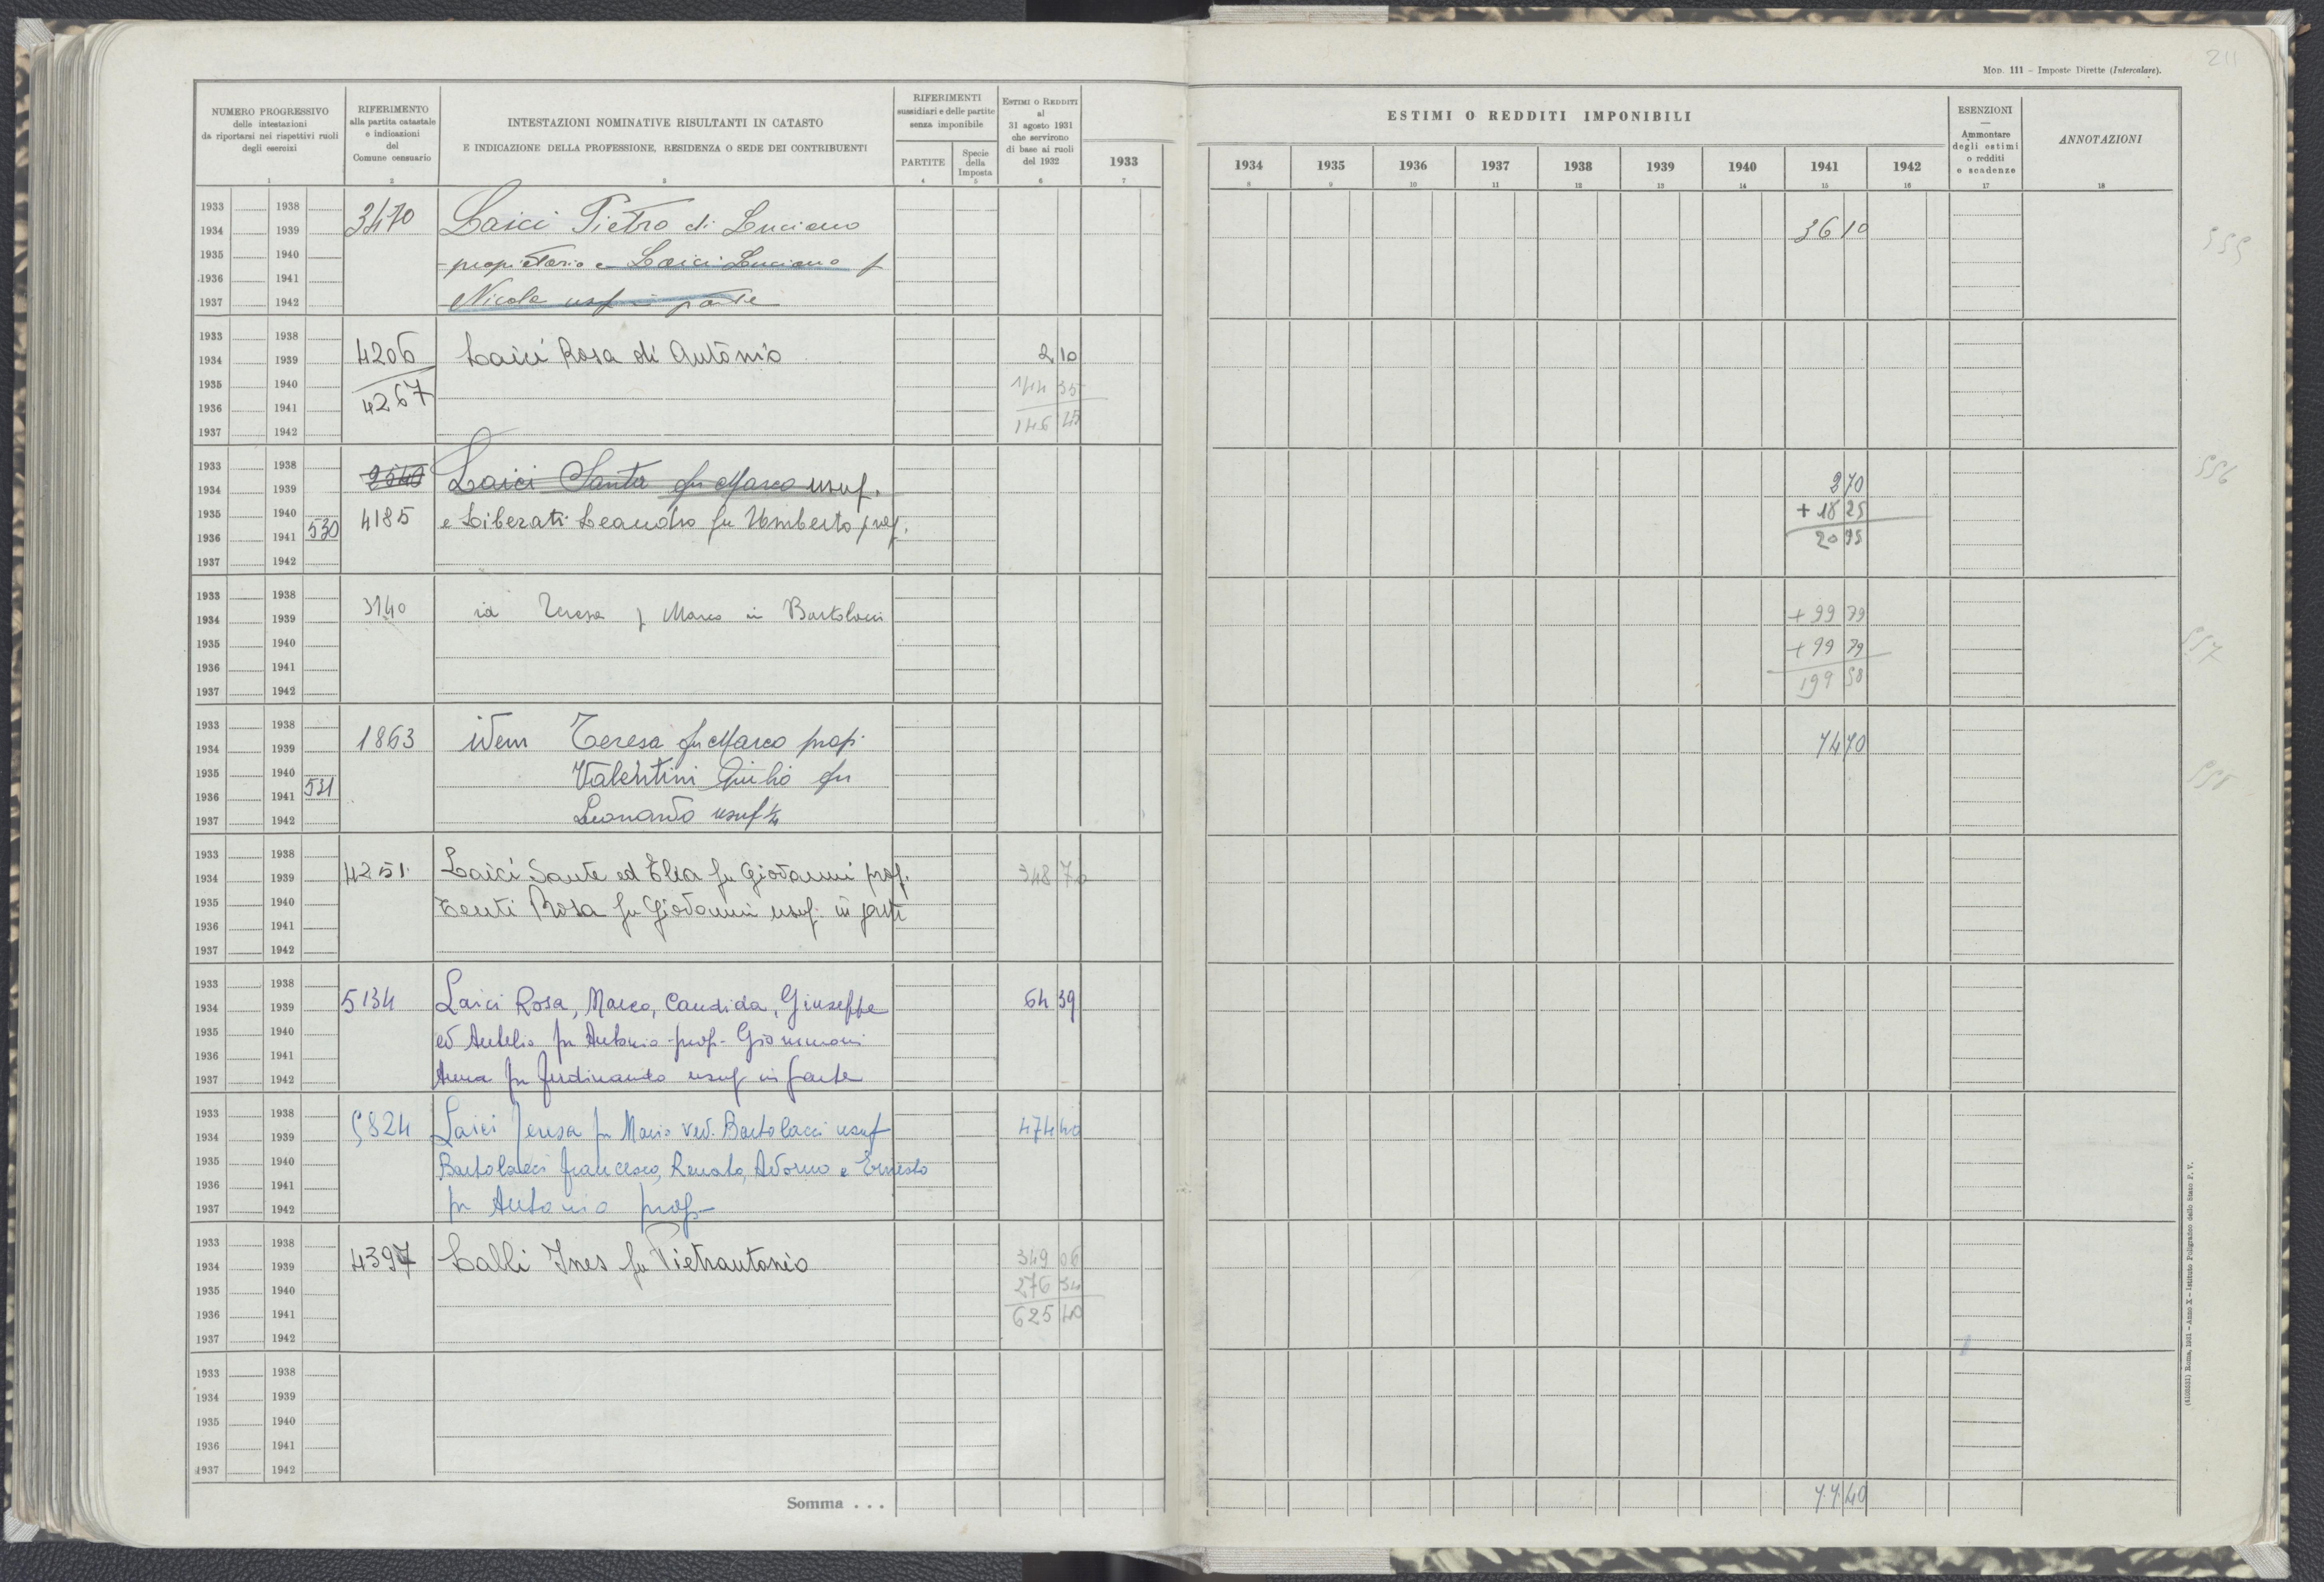 211
Mod. 111 - Imposte Dirette (Intercalare).
NUMERO PROGRESSIVO
delle intestazioni
da riportarsi nei rispettivi ruoli
degli esercizi
1
RIFERIMENTO
alla partita catastale
e indicazioni
del
Comune censuario
2
INTESTAZIONI NOMINATIVE RISULTANTI IN CATASTO
E INDICAZIONE DELLA PROFESSIONE, RESIDENZA O SEDE DEI CONTRIBUENTI
3
RIFERIMENTI
sussidiari e delle partite
senza imponibile
PARTITE
4
Specie
della
Imposta
5
ESTIMI O REDDITI
al
31 agosto 1931
che servirono
di base ai ruoli
del 1932
6
1933
7
ESTIMI O REDDITI IMPONIBILI
1934 1935 1936 1937 1938 1939 1940 1941 1942
8 9 10 11 12 13 14 15 16
ESENZIONI
—
Ammontare
degli estimi
o redditi
e scadenze
17
ANNOTAZIONI
18
1933 1938
1934 1939 3470 Laici Pietro di Luciano 36 10 555
1935 1940 proprietario e Laici Luciano f
1936 1941 Nicola usuf in parte
1937 1942
1933 1938
1934 1939 4206 Laici Rosa di Antonio 2 10
1935 1940 4267 144 35
1936 1941 146 45
1937 1942
1933 1938
1934 1939 2540 Laici Santa fu Marco usuf. 2 70 556
1935 1940 530 4185 e Liberati Leandro fu Umberto prop. + 18 25
1936 1941 20 95
1937 1942
1933 1938
1934 1939 3140 id Teresa f Marco in Bartolacci + 99 79
1935 1940 + 99 79 557
1936 1941 199 58
1937 1942
1933 1938
1934 1939 1863 idem Teresa fu Marco prop. 74 70
1935 1940 Valentini Giulio fu 558
1936 1941 531 Leonardo usuf ¼
1937 1942
1933 1938
1934 1939 4251 Laici Sante ed Elia fu Giovanni prop. 348 70
1935 1940 Tenti Rosa fu Giovanni usuf. in parte
1936 1941
1937 1942
1933 1938
1934 1939 5134 Laici Rosa, Marco, Candida, Giuseppe 64 39
1935 1940 ed Aurelio fu Antonio prop.- Giammoni
1936 1941 Anna fu Ferdinando usuf in parte
1937 1942
1933 1938
1934 1939 5824 Laici Teresa fu Mario ved. Bartolacci usuf 474 40
1935 1940 Bartolacci Francesco, Renato, Adorno e Ernesto
1936 1941 fu Antonio prop-
1937 1942
1933 1938
1934 1939 4397 Lalli Ines fu Pietrantonio 349 06
1935 1940 276 34
1936 1941 625 40
1937 1942
1933 1938
1934 1939
1935 1940
1936 1941
1937 1942
Somma . . . 77 40
(4103557) Roma, 1931 - Anno X - Istituto Poligrafico dello Stato P. V.